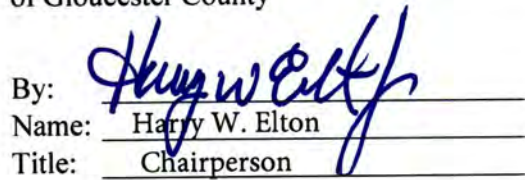 of Gloucester County
By: Harry W Elt Jr
Name: Harry W. Elton
Title: Chairperson